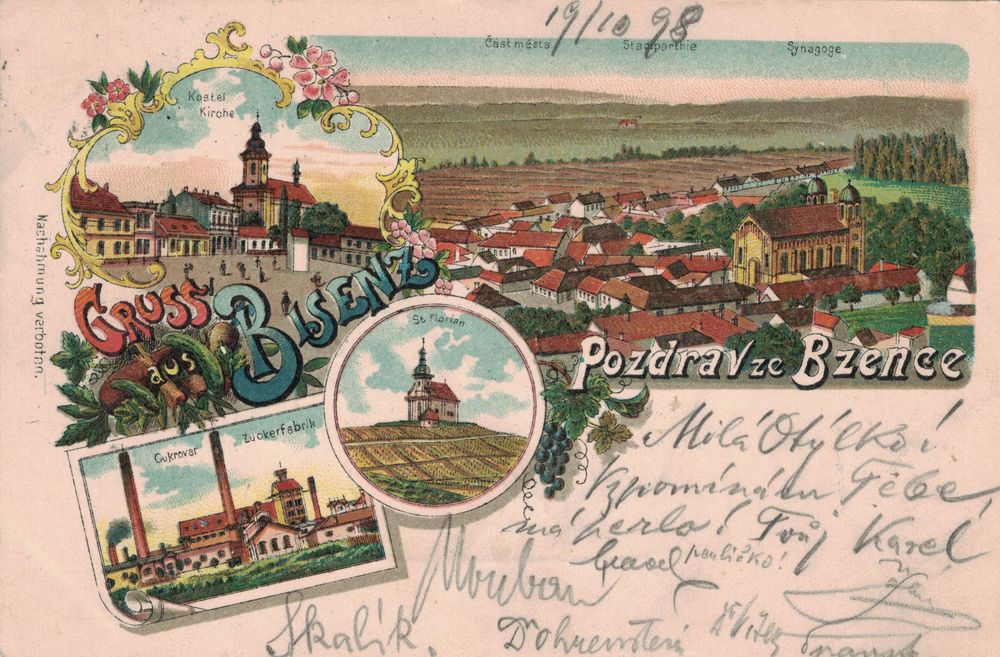 19/10 98
Část města
Stadtparthie
Synagoge
Kostel
Kirche
Nachahmung verboten.
GRUSS
aus
BISENZ
St. Florian
Pozdrav ze Bzence
Cukrovar
Zuckerfabrik
Milá Otylko!
Vzpomínám Tebe,
má perlo! Tvůj Karel
Skalík.